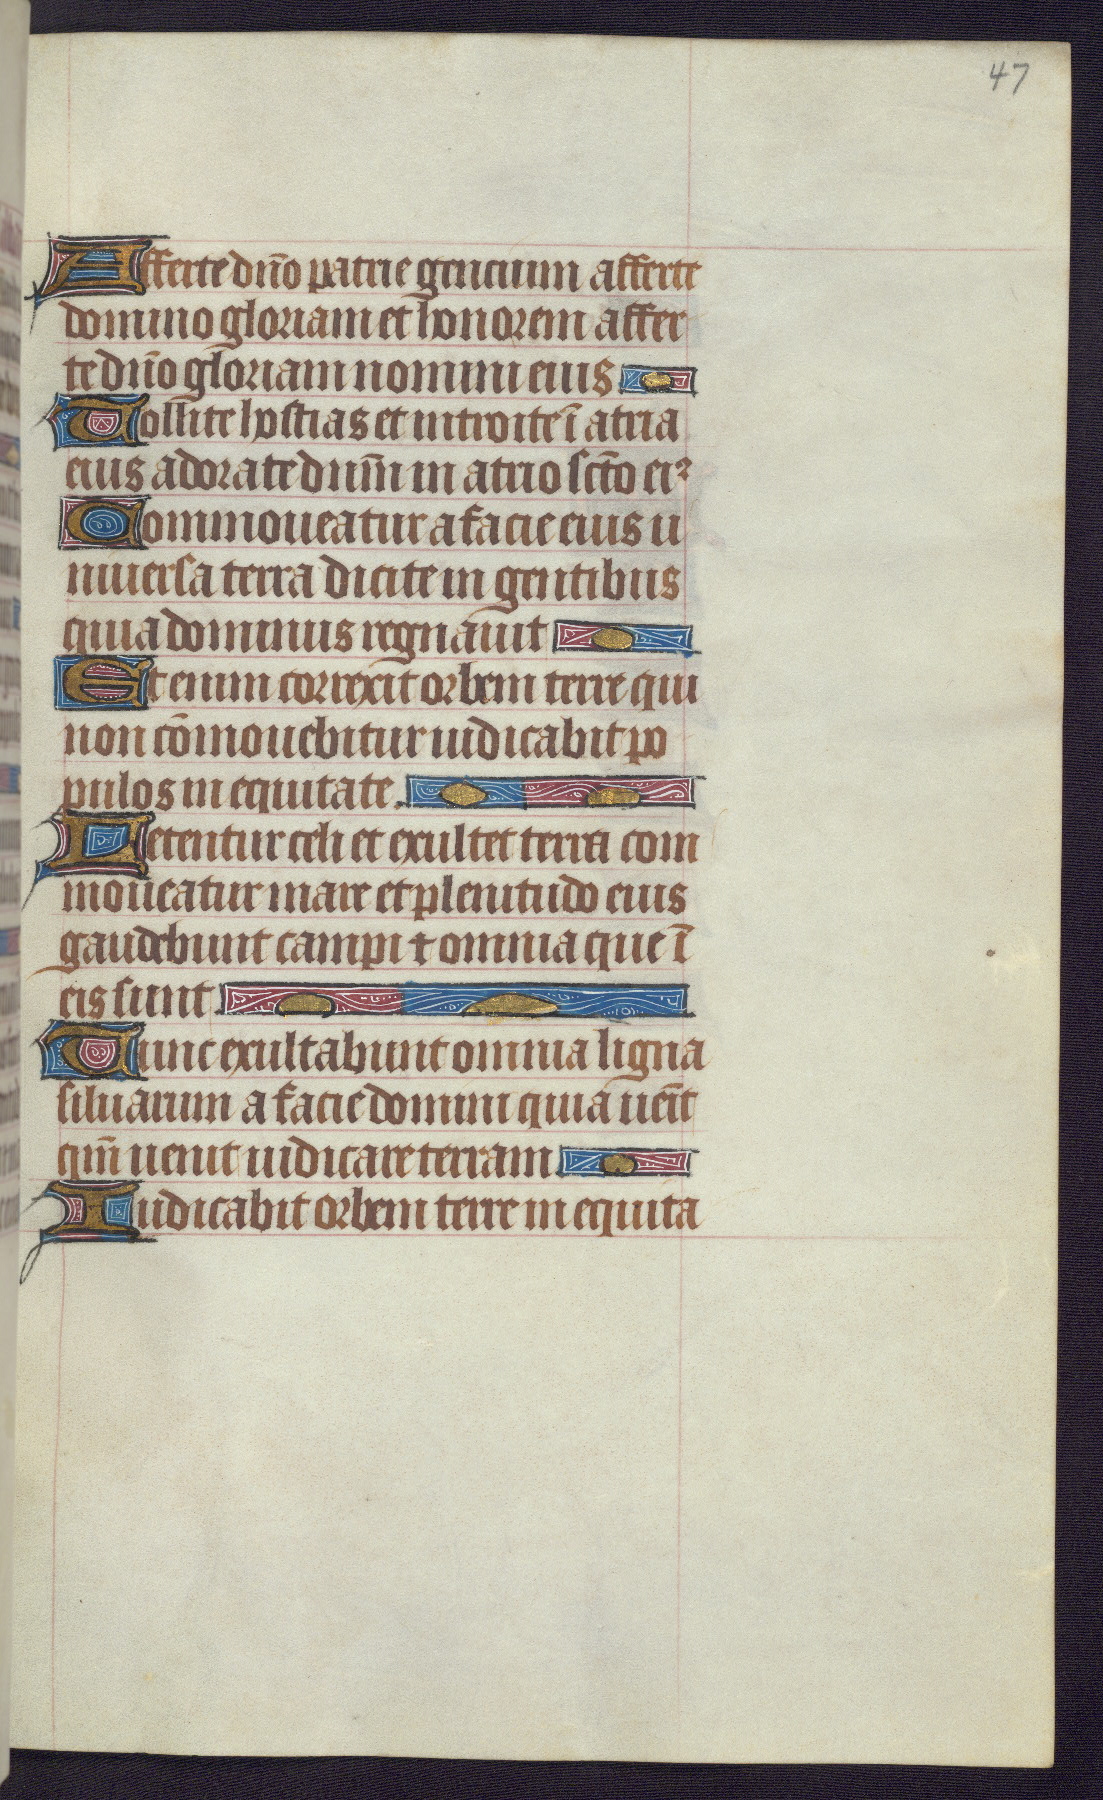 47
Afferte dño patrie gencium afferte
domino gloriam et honorem affer
te dño gloriam nomini eius
Tollite hostias et introite ī atria
eius adorate dnm̄ in atrio sct̄o eiꝰ
Commoueatur a facie eius u
niuersa terra dicite in gentibus
quia dominus regnauit
Et enim correxit orbem terre qui
non cōmouebitur iudicabit po
pulos in equitate
Letentur celi et exultet terra com
moueatur mare et plenitudo eius
gaudebunt campi ⁊ omnia que ī
eis sunt
Tunc exultabunt omnia ligna
siluarum a facie domini quia uēit
qm̄ uenit iudicare terram
Iudicabit orbem terre in equita